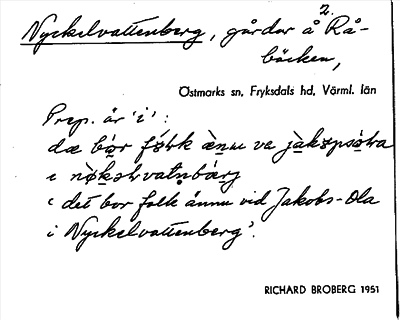 2.
Nyckelvattenberg, gårdar å Rå-
bäcken,
Östmarks sn, Fryksdals hd, Värml. län
Prep. är 'i':
dæ bor fołk ænu ve jakɷpsoła
i nøkəłvatnbærj
'det bor folk ännu vid Jakobs-Ola
i Nyckelvattenberg'.
RICHARD BROBERG 1951